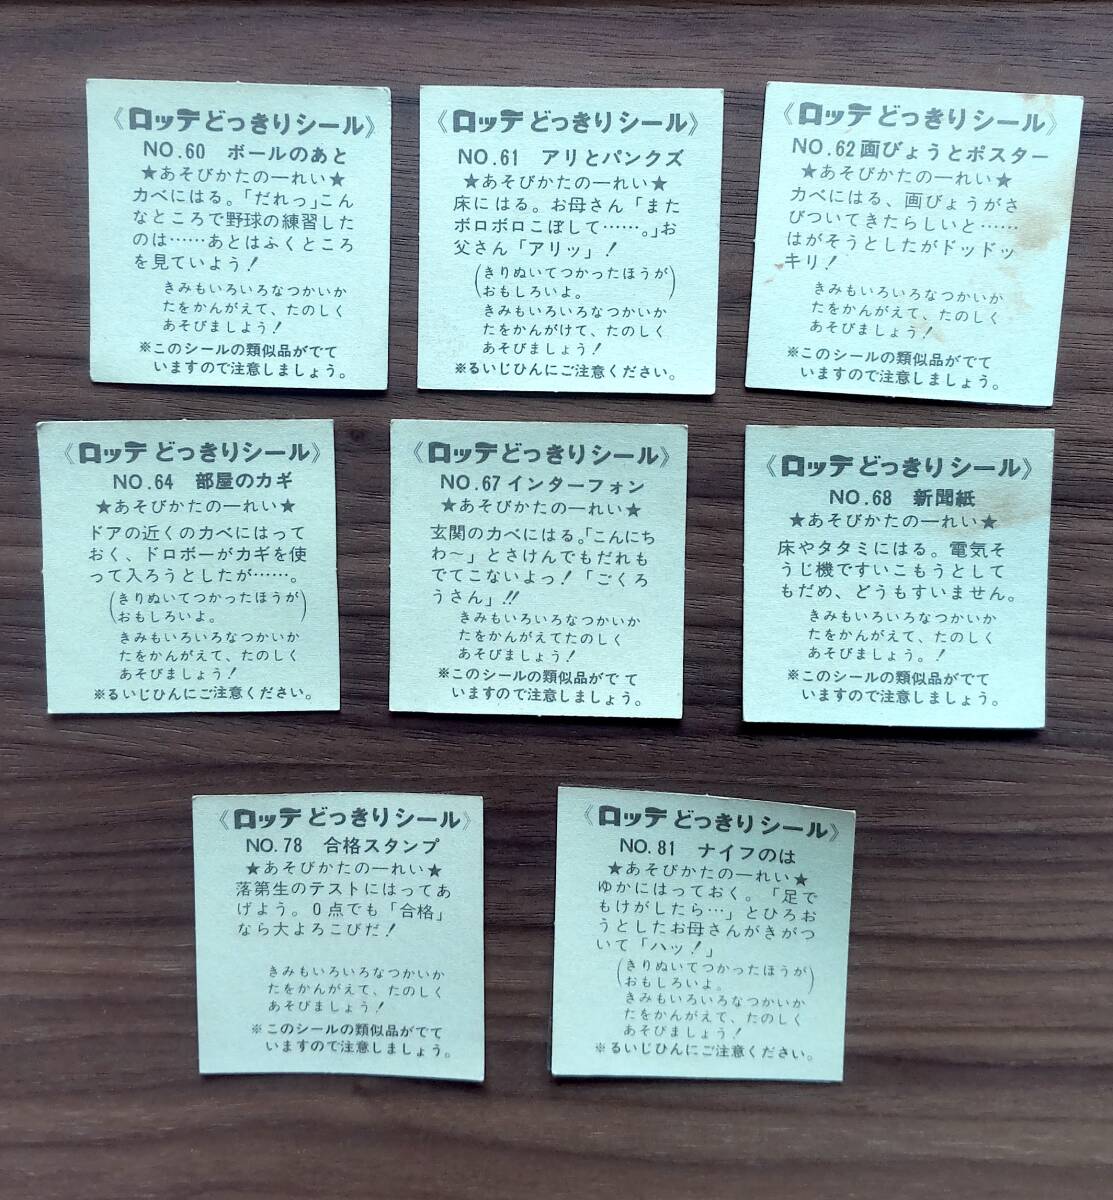 《ロッテどっきりシール》
NO.60 ボールのあと
★あそびかたの一れい★
カベにはる。「だれっ」こん
なところで野球の練習した
のは……あとはふくところ
を見ていよう!
きみもいろいろなつかいか
たをかんがえて、たのしく
あそびましよう!
※このシールの類似品がでて
いますので注意しましょう。
《ロッテどっきりシール》
NO.61 アリとパンクズ
★あそびかたの一れい★
床にはる。お母さん「また
ボロボロこぼして……。」お
父さん「アリッ」!
(きりぬいてつかったほうが
おもしろいよ。)
きみもいろいろなつかいか
たをかんがけて、たのしく
あそびましよう!
※るいじひんにご注意ください。
《ロッテどっきりシール》
NO.62画びょうとポスター
★あそびかたの一れい★
カベにはる、画びょうがさ
びついてきたらしいと……
はがそうとしたがドッドッ
キリ!
きみもいろいろなつかいか
たをかんがえて、たのしく
あそびましよう!
※このシールの類似品がでて
いますので注意しましょう。
《ロッテどっきりシール》
NO.64 部屋のカギ
★あそびかたの一れい★
ドアの近くのカベにはって
おく、ドロボーがカギを使
って入ろうとしたが……。
(きりぬいてつかったほうが
おもしろいよ。)
きみもいろいろなつかいか
たをかんがえて、たのしく
あそびましよう!
※るいじひんにご注意ください。
《ロッテどっきりシール》
NO.67インターフォン
★あそびかたの一れい★
玄関のカベにはる。「こんにち
わ〜」とさけんでもだれも
でてこないよっ!「ごくろ
うさん」!!
きみもいろいろなつかいか
たをかんがえてたのしく
あそびましょう!
※このシールの類似品がでて
いますので注意しましょう。
《ロッテどっきりシール》
NO.68 新聞紙
★あそびかたの一れい★
床やタタミにはる。電気そ
うじ機ですいこもうとして
もだめ、どうもすいません。
きみもいろいろなつかいか
たをかんがえて、たのしく
あそびましよう。!
※このシールの類似品がでて
いますので注意しましょう。
《ロッテどっきりシール》
NO.78 合格スタンプ
★あそびかたの一れい★
落第生のテストにはってあ
げよう。0点でも「合格」
なら大よろこびだ!
きみもいろいろなつかいか
たをかんがえて、たのしく
あそびましょう!
※このシールの類似品がでて
いますので注意しましょう。
《ロッテどっきりシール》
NO.81 ナイフのは
★あそびかたの一れい★
ゆかにはっておく。「足で
もけがしたら…」とひろお
うとしたお母さんがきがつ
いて「ハッ!」
(きりぬいてつかったほうが
おもしろいよ。)
きみもいろいろなつかいか
たをかんがえて、たのしく
あそびましよう!
※るいじひんにご注意ください。